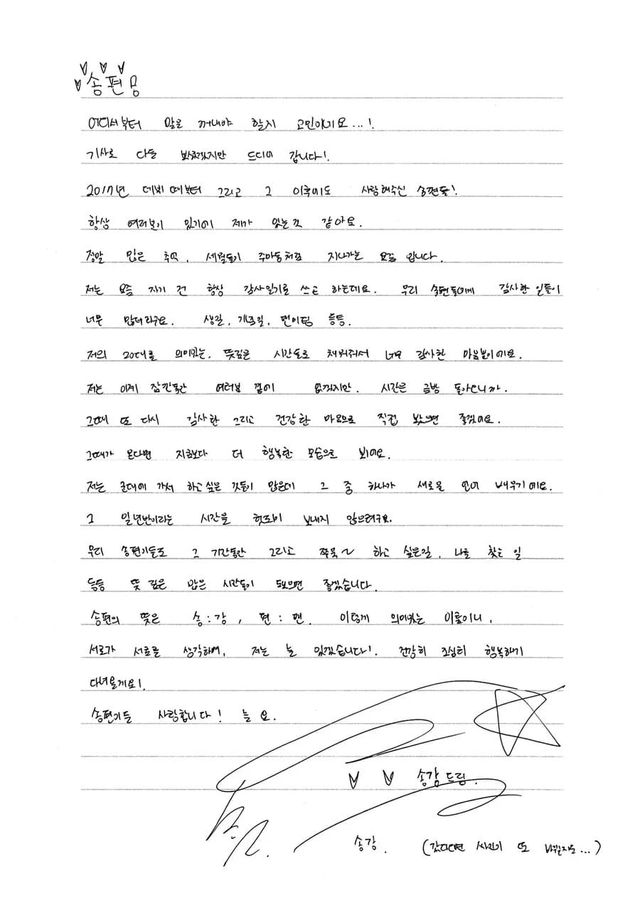 송편
어디서부터 말을 꺼내야 할지 고민이기요...!
기사로 다들 보셨겠지만 드디어 갑니다!
2017년 데뷔 때부터 그리고 그 이후에도 사랑해주신 송편들!
항상 여러분이 있기에 제가 있는것 같아요.
정말 많은 추억, 세월들이 주마등처럼 지나가는 요즘 입니다.
저는 요즘 자기 전 항상 감사일기를 쓰고 하는데요. 우리 송편들에게 감사한 일들이
너무 많더라구요. 생일, 개구일, 팬미팅 등등.
저의 20대를 의미있는, 뜻깊은 시간들로 채워줘서 너무 감사한 마음뿐이에요.
저는 이제 잠깐동안 여러분 곁에 없겠지만. 시간은 금방 돌아오니까.
그때 또 다시 감사한 그리고 건강한 마음으로 직접 봤으면 좋겠어요.
그때가 온다면 지금보다 더 행복한 모습으로 봐요.
저는 군대에 가서 하고싶은 것들이 많은데 그 중 하나가 새로운 언어 배우기에요.
그 일년반이라는 시간을 헛되이 보내지 않으려구요.
우리 송편이들도 그 기간동안 그리고 쭈욱~ 하고 싶은일, 나를 찾는 일
등등 뜻 깊은 많은 시간들이 됐으면 좋겠습니다.
송편의 뜻은 송:강, 편:팬. 이렇게 의미있는 이름이니,
서로가 서로를 생각하며, 저는 늘 있겠습니다!. 건강히 조심히 행복하게
다녀올게요!
송편이들 사랑합니다! 늘 요.
송강드림.
송강. (갔다오면 싸인이 또 바뀔지도...)